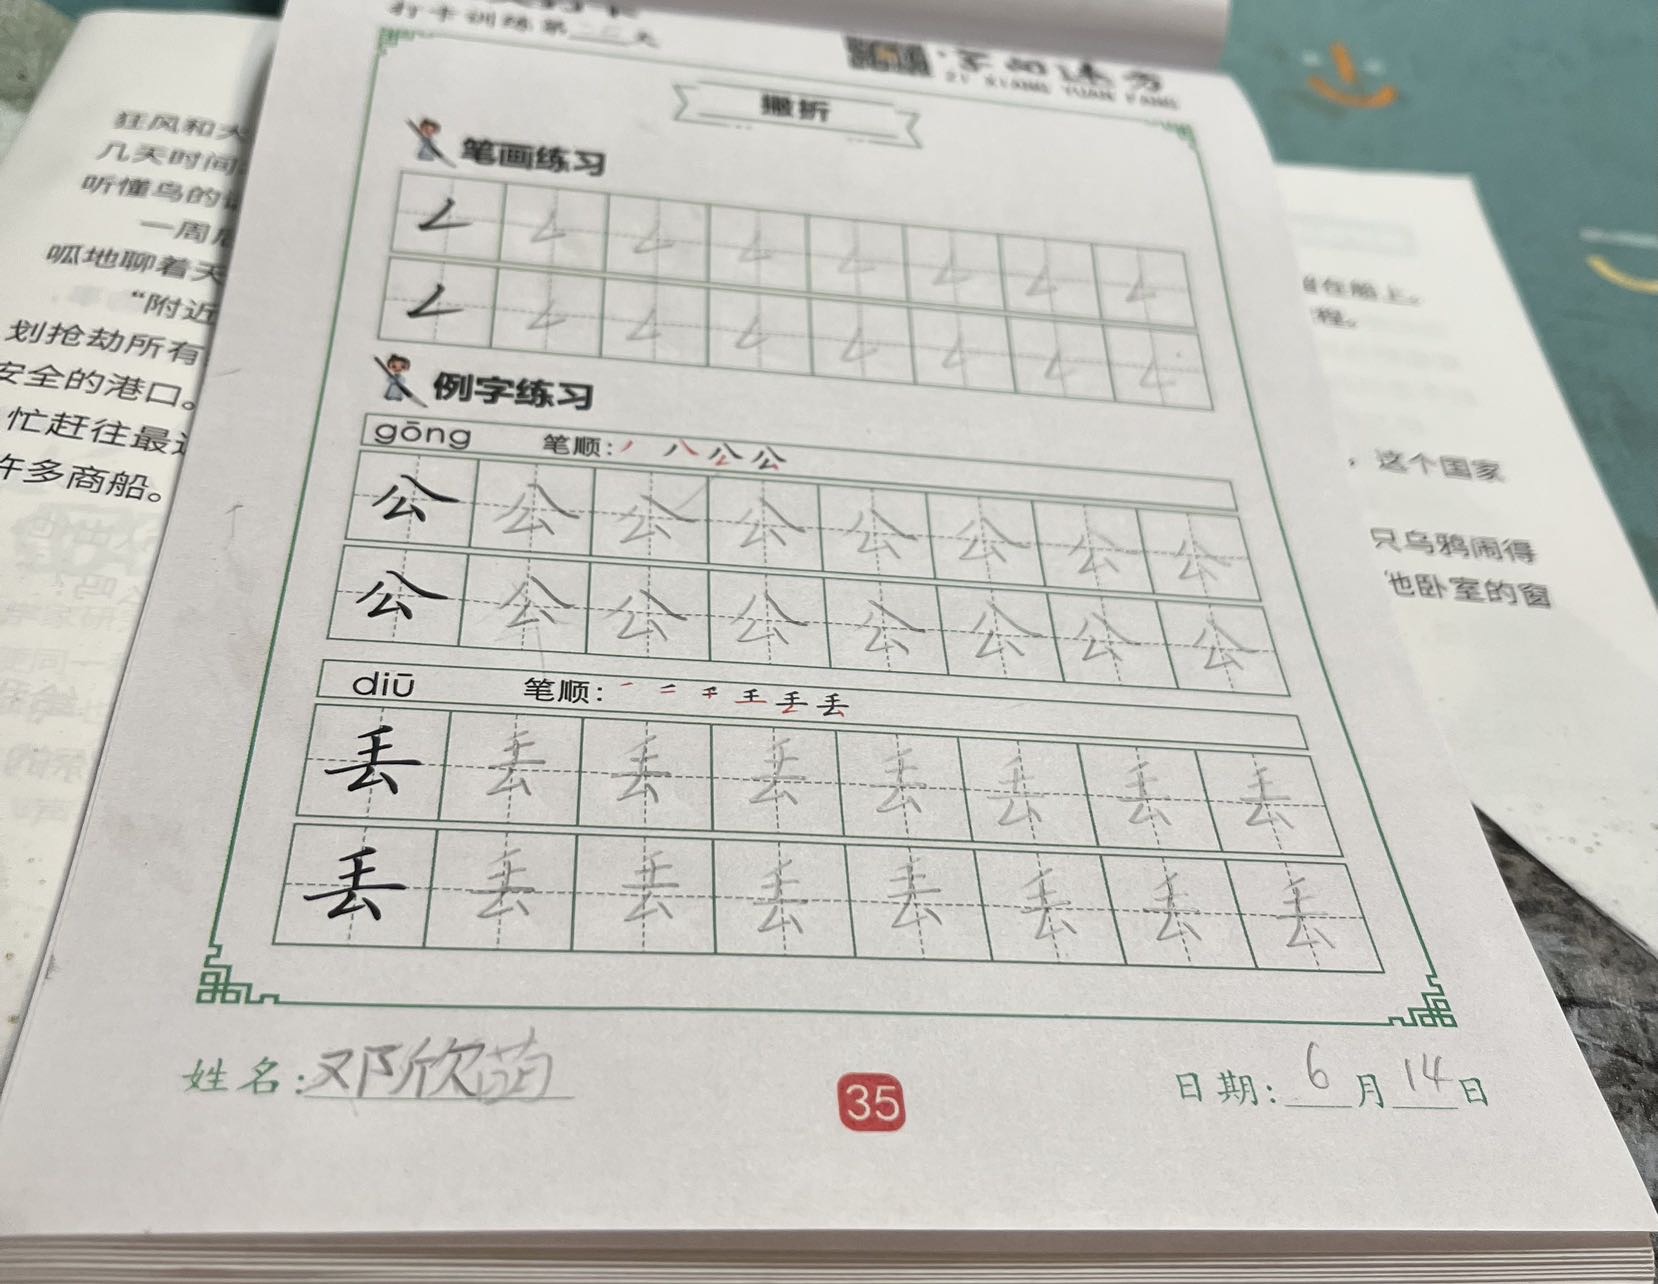 狂风和大
几天时间
听懂鸟的
一周
呱地聊着天
“附近
划抢劫所有
安全的港口。
忙赶往最
许多商船。
打卡训练第二天
字如其方
ZI XIANG YUAN FANG
撇折
笔画练习
𠃋 𠃋 𠃋 𠃋 𠃋 𠃋 𠃋 𠃋
𠃋 𠃋 𠃋 𠃋 𠃋 𠃋 𠃋 𠃋
例字练习
gōng 笔顺: 丿 八 公 公
公 公 公 公 公 公 公 公
公 公 公 公 公 公 公 公
diū 笔顺: 一 二 千 王 丢 丢
丢 丢 丢 丢 丢 丢 丢 丢
丢 丢 丢 丢 丢 丢 丢 丢
姓名:邓欣茵
35
日期: 6 月 14 日
在船上。
程。
，这个国家
只乌鸦闹得
他卧室的窗